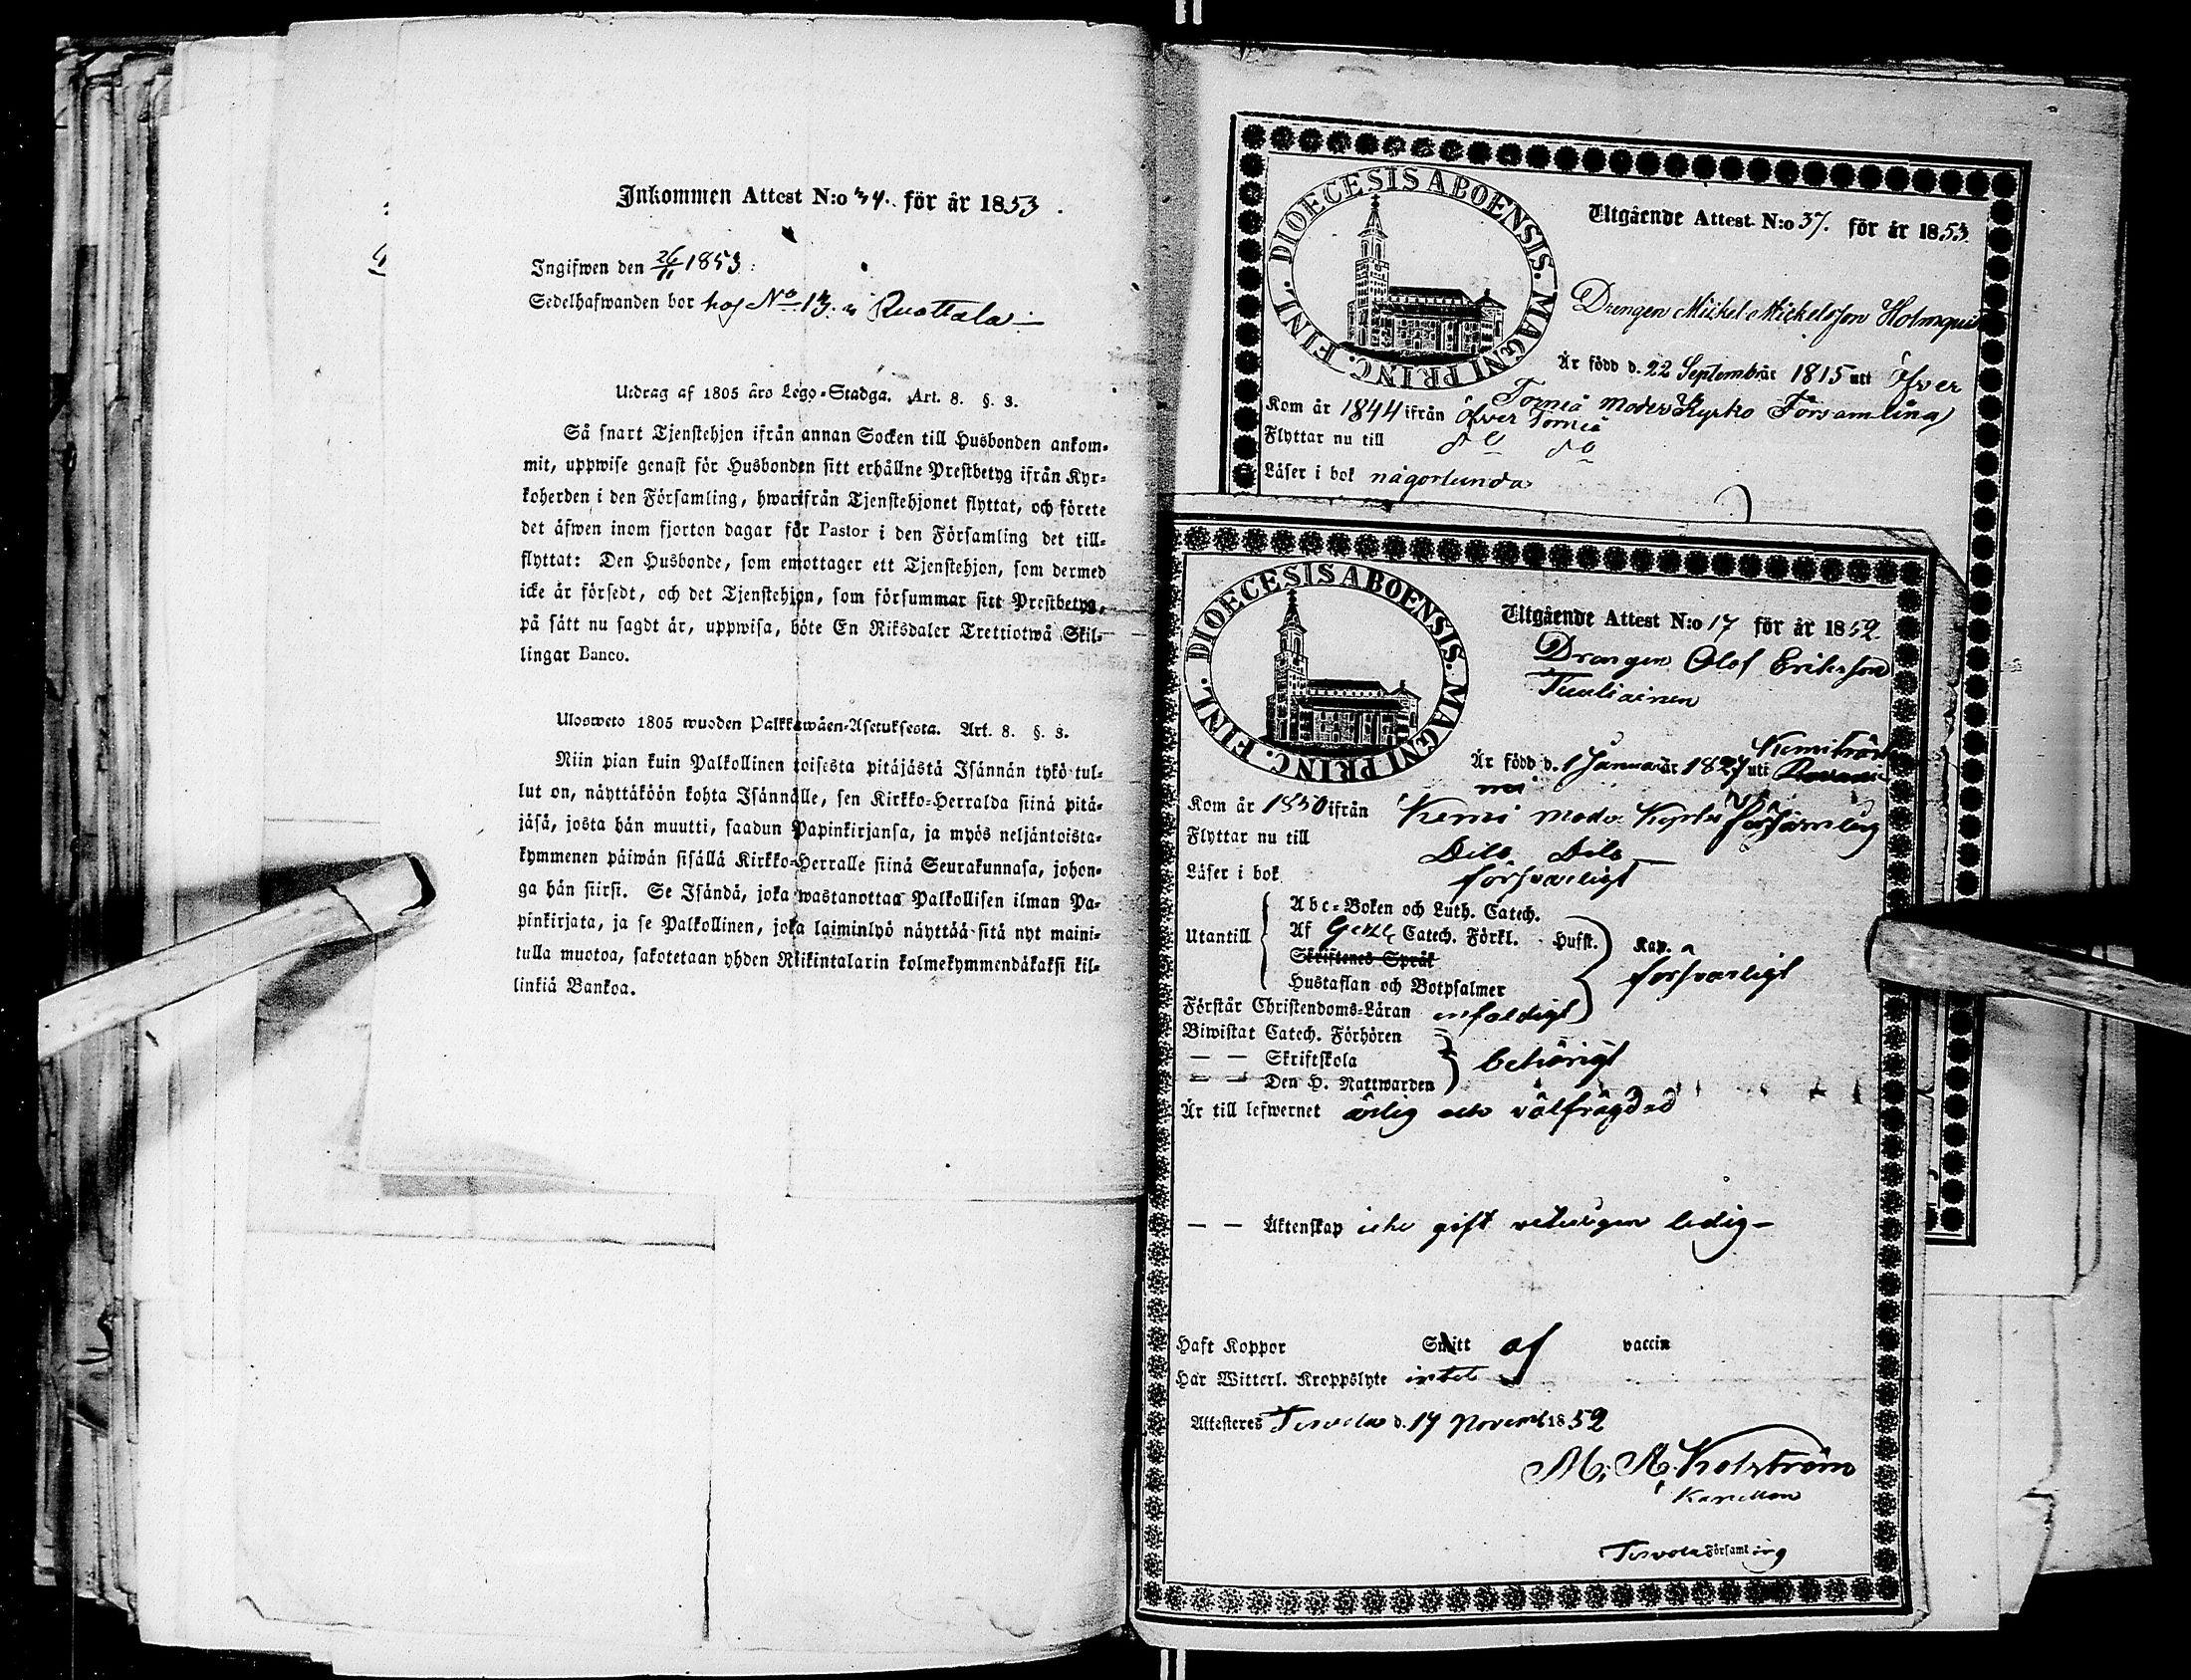 Inkommen Attest N:o 34. för år 1853.
Ingifwen den 26/11 1853.
Sedelhafwanden bor hos No 13. i Ruottala
Utdrag af 1805 års Lego-Stadga. Art. 8. §. 3.
Så snart Tjenstehjon ifrån annan Socken till Husbonden ankom-
mit, uppwise genast för Husbonden sitt erhållne Prestbetyg ifrån Kyr-
koherden i den Församling, hwarifrån Tjenstehjonet flyttat, och förete
det äfwen inom fjorton dagar för Pastor i den Församling det till-
flyttat: Den Husbonde, som emottager ett Tjenstehjon, som dermed
icke är försedt, och det Tjenstehjon, som försummar sitt Prestbetyg,
på sätt nu sagdt är, uppwisa, böte En Riksdaler Trettiotwå Skil-
lingar Banco.
Ulosweto 1805 wuoden Palkkawäen-Asetuksesta. Art. 8. §. 3.
Niin pian kuin Palkollinen toisesta pitäjästä Isännän tykö tul-
lut on, näyttäköön kohta Isännälle, sen Kirkko-Herralda siinä pitä-
jäsä, josta hän muutti, saadun Papinkirjansa, ja myös neljäntoista-
kymmenen päiwän sisällä Kirkko-Herralle siinä Seurakunnasa, johon-
ga hän siirsi. Se Isändä, joka wastanottaa Palkollisen ilman Pa-
pinkirjata, ja se Palkollinen, joka laiminlyö näyttää sitä nyt maini-
tulla muotoa, sakotetaan yhden Riikintalarin kolmekymmendäkaksi kil-
linkiä Bankoa.
DIOECESIS ABOENSIS. MAGNI PRINC. FINL.
Utgående Attest N:o 37. för år 1853.
Drengen Mickel Mickelsson Holmquist
Är född d. 22 Septemb år 1815 uti Öfver
Torneå moders Kyrko Församling
Kom år 1844 ifrån Öfver Torneå
Flyttar nu till do do
Läser i bok någorlunda
DIOECESIS ABOENSIS. MAGNI PRINC. FINL.
Utgående Attest N:o 17 för år 1852.
Drengen Olof Eriksson
Tuuliainen
Kemiträsk
Är född d. 1 Januar år 1827 uti
Kom år 1850 ifrån Kemi moder Kyrko församling
Flyttar nu till Dito Dito
Läser i bok försvarligt
Utantill
Abc-Boken och Luth. Catech.
Af Catech. Förkl. Hufst. Kap.
Skriftenes Språk
Hustaflan och Botpsalmer
försvarligt
Förstår Christendoms-Läran enfaldigt
Biwistat Catech. Förhören
— — Skriftskola
— — Den H. Nattwarden
behörigt
Är till lefwernet ärlig och välfrägdad
— — Äktenskap icke gift veterligen ledig
Haft Koppor Smitt af vaccin
Har Witterl. Kroppslyte intet
Attesteres Tervola d. 17 Novemb 1852
Kapellan
Tervola Församling